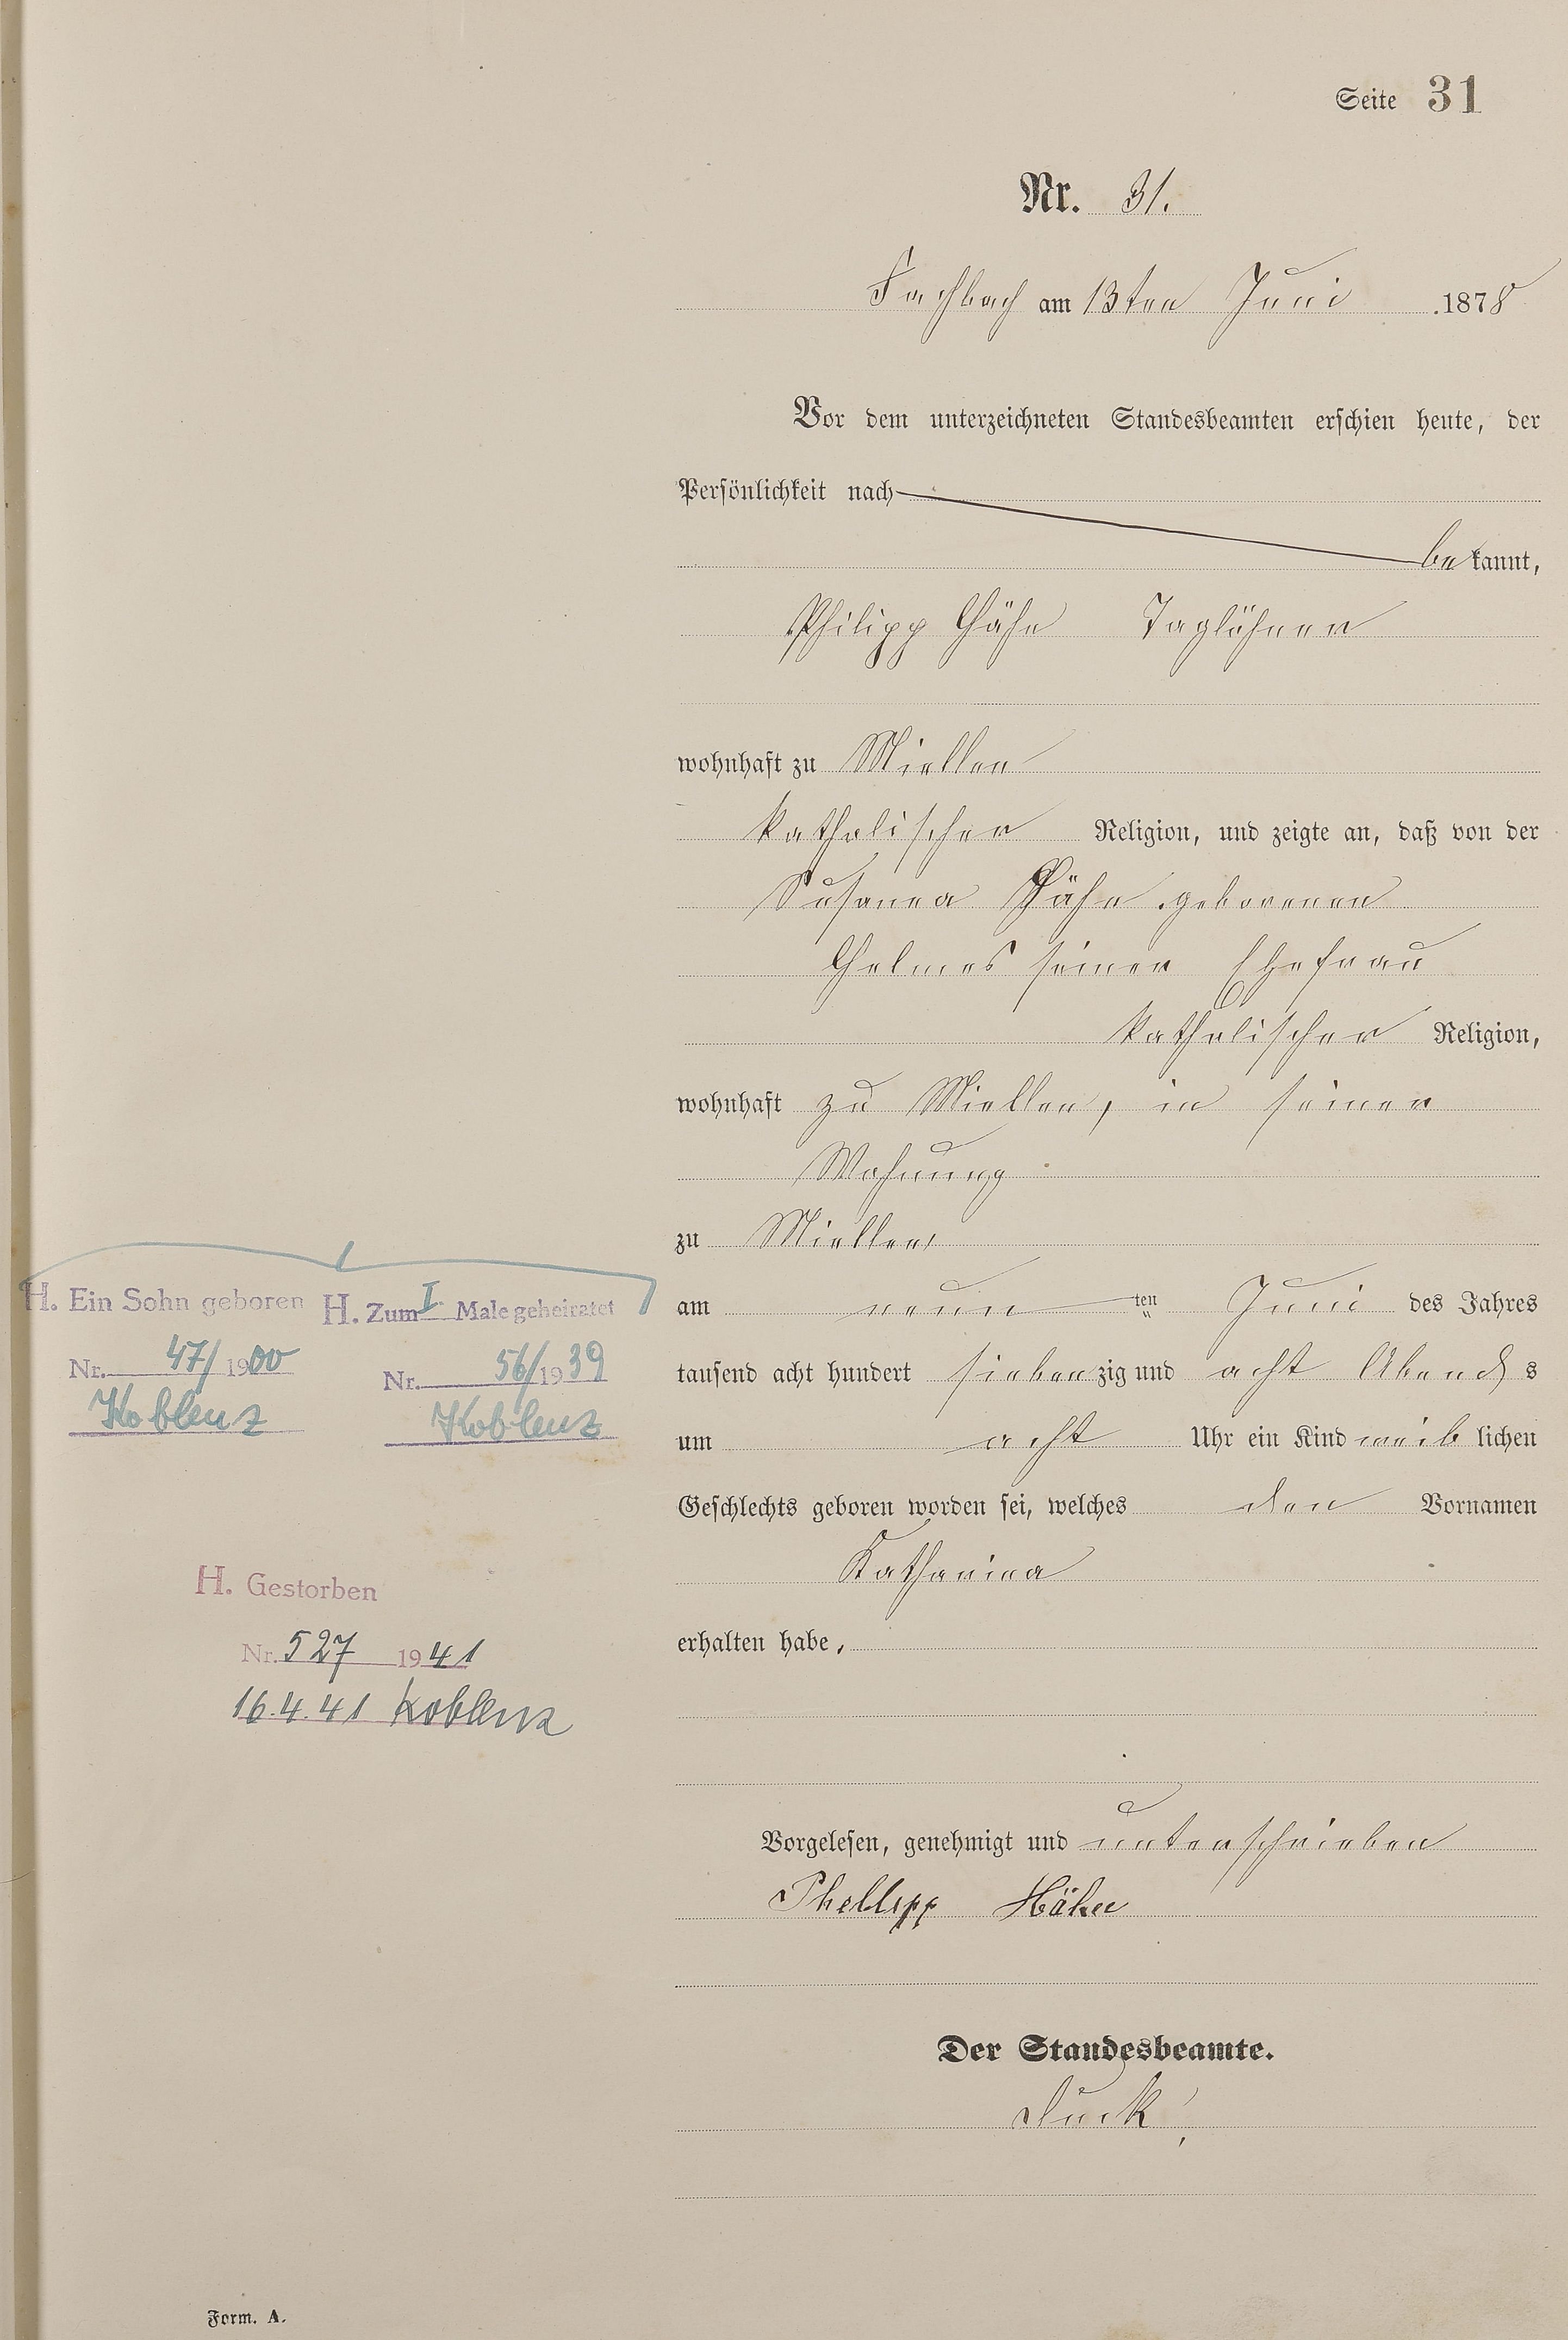 Seite 31
Nr. 31.
Fachbach am 13ten Juni 1878
Vor dem unterzeichneten Standesbeamten erschien heute, der
Persönlichkeit nach
bekannt,
Philipp Hähn Taglöhner
wohnhaft zu Miellen
katholischer Religion, und zeigte an, daß von der
Susanna Hähn geborenen
Helmes seiner Ehefrau
katholischer Religion,
wohnhaft zu Miellen, in seiner
Wohnung
zu Miellen
am neun ten Juni des Jahres
tausend acht hundert siebenzig und acht Abends
um acht Uhr ein Kind weiblichen
Geschlechts geboren worden sei, welches den Vornamen
Katharina
erhalten habe,
Vorgelesen, genehmigt und unterschrieben
Phellipp Hähn
Der Standesbeamte.
Duck
H. Ein Sohn geboren
Nr. 47/1900
Koblenz
H. Zum I Male geheiratet
Nr. 56/1939
Koblenz
H. Gestorben
Nr. 527 1941
16.4.41 Koblenz
Form. A.